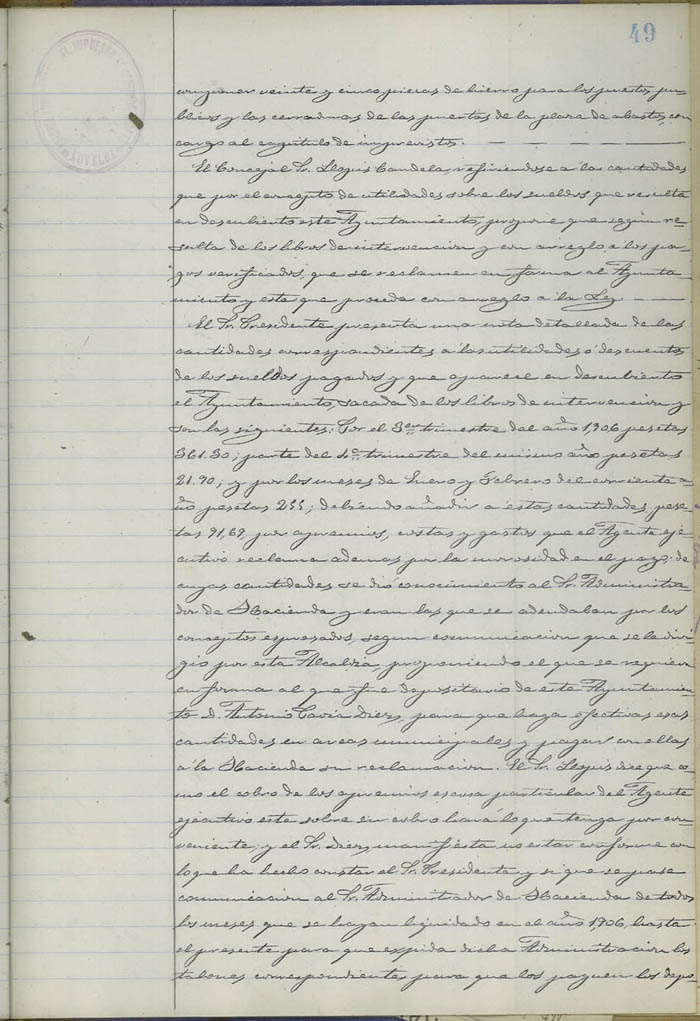 49
componer veinte y cinco piezas de hierro para los puestos pú-
blicos y las cerraduras de las puertas de la plaza de abastos, con
cargo al capítulo de imprevistos.
El Concejal Sr. Llopis Candela, refiriendose a las cantidades
que por el concepto de utilidades sobre los sueldos que resulta
en descubierto este Ayuntamiento, propone que según re-
sulta de los libros de intervencion y con arreglo a los pa-
gos verificados, que se reclamen en forma al Ayunta-
miento y este que proceda con arreglo á la Ley.
El Sr. Presidente presenta una nota detallada de las
cantidades correspondientes a las utilidades ó descuentos
de los sueldos pagados y que aparece en descubierto
el Ayuntamiento, sacada de los libros de intervencion y
son las siguientes: Por el 3er trimestre del año 1906 pesetas
361.30; parte del 4º trimestre del mismo año pesetas
21.90; y por los meses de Enero y Febrero del corriente a-
ño pesetas 255; debiendo añadir a estas cantidades, pese-
tas 91,69, por apremios, costas y gastos que el Agente eje-
cutivo reclama ademas por la morosidad en el pago; de
cuyas cantidades se dió conocimiento al Sr. Administra-
dor de Hacienda y eran las que se adeudaban por los
conceptos espresados, segun comunicacion que se le diri-
gió por esta Alcaldia, proponiendo el que se requiera
en forma al que fue depositario de este Ayuntamien-
to D. Antonio Diez, para que haga efectivas esas
cantidades en arcas municipales y pagar con ellas
a la Hacienda su reclamacion. El Sr. Llopis dice que co-
mo el cobro de los apremios es cosa particular del Agente
ejecutivo este sobre su cobro hará lo que tenga por con-
veniente; y el Sr. Diez, manifiesta no estar conforme con
lo que ha hecho constar el Sr. Presidente y si que se pase
comunicacion al Sr. Administrador de Hacienda de todos
los meses que se hayan liquidado en el año 1906, hasta
el presente para que expida dicha Administracion los
talones correspondientes para que los paguen los depo-